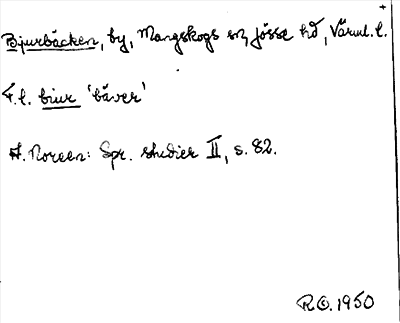 Bjurbäcken, by, Mangskogs sn, Jösse hd, Värml. l.
F. l. biur 'bäver'
A. Noreen: Spr. studier II, s. 82.
R©. 1950